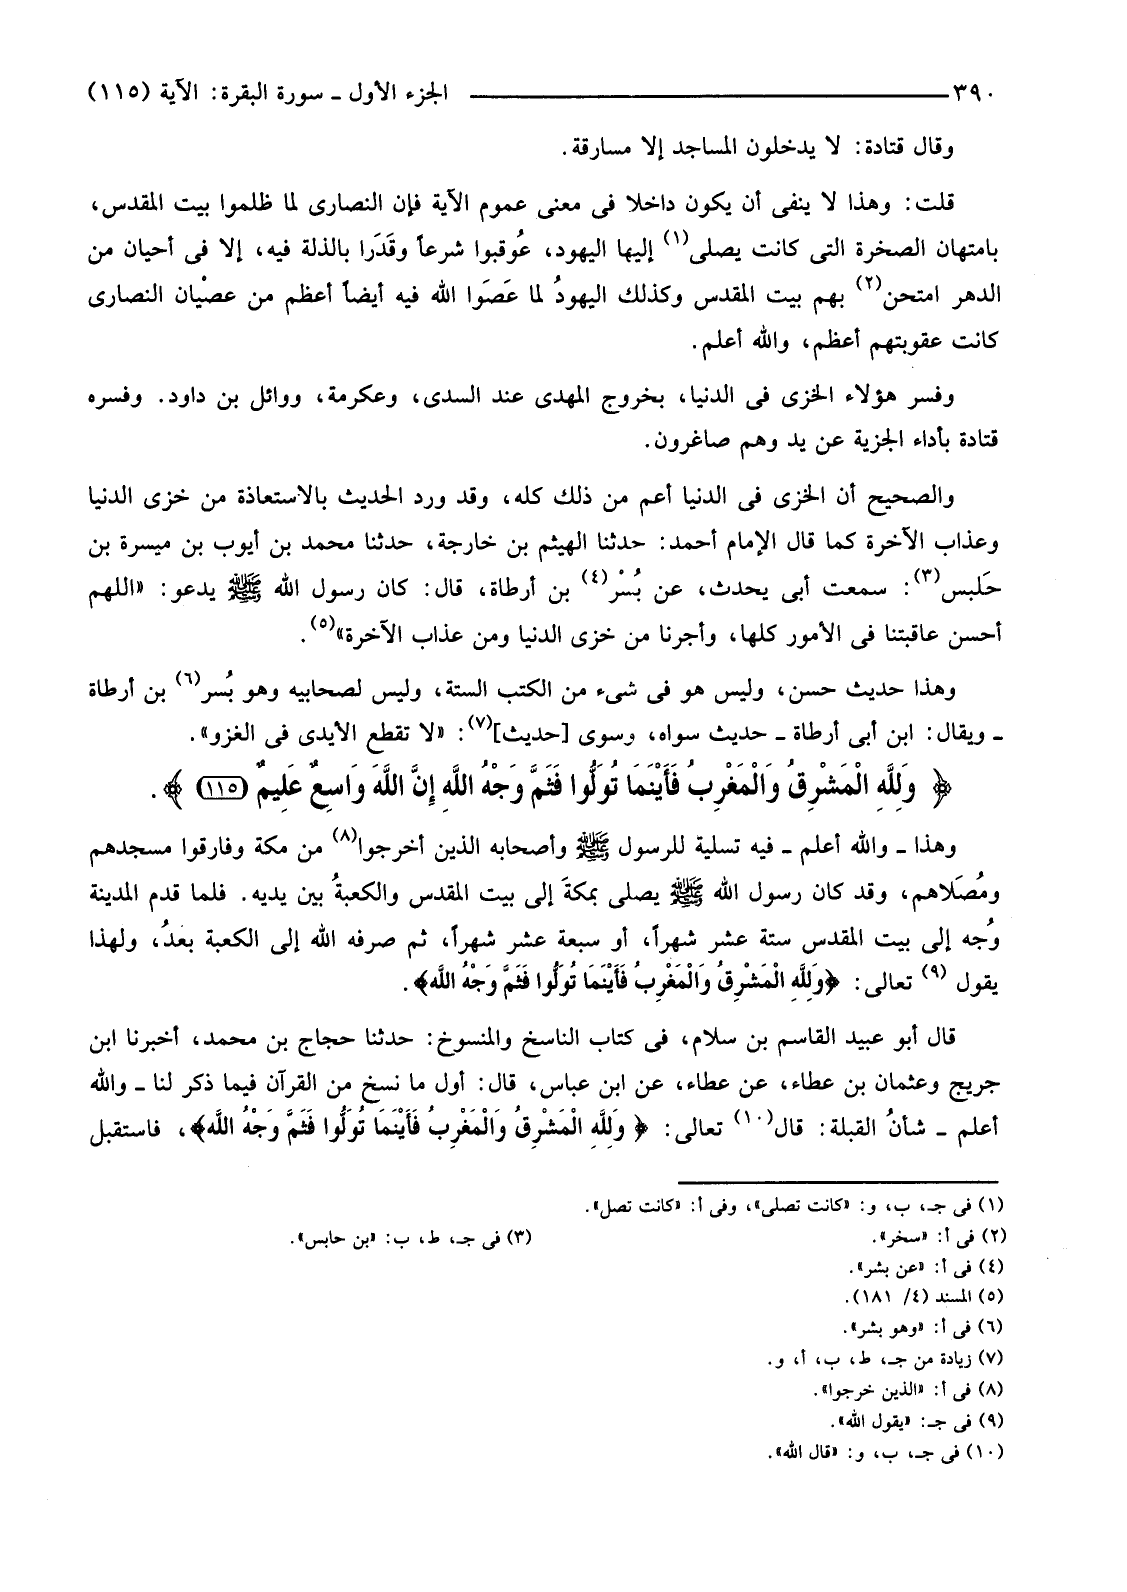 ٣٩٠ ــــــــــــــــ الجزء الأول ـ سورة البقرة: الآية (١١٥)
وقال قتادة: لا يدخلون المساجد إلا مسارقة.
قلت: وهذا لا ينفى أن يكون داخلا فى معنى عموم الآية فإن النصارى لما ظلموا بيت المقدس،
بامتهان الصخرة التى كانت يصلى(١) إليها اليهود، عُوقبوا شرعاً وقَدَرا بالذلة فيه، إلا فى أحيان من
الدهر امتحن(٢) بهم بيت المقدس وكذلك اليهودُ لما عَصَوا الله فيه أيضاً أعظم من عصْيان النصارى
كانت عقوبتهم أعظم، والله أعلم.
وفسر هؤلاء الخزى فى الدنيا، بخروج المهدى عند السدى، وعكرمة، ووائل بن داود. وفسره
قتادة بأداء الجزية عن يد وهم صاغرون.
والصحيح أن الخزى فى الدنيا أعم من ذلك كله، وقد ورد الحديث بالاستعاذة من خزى الدنيا
وعذاب الآخرة كما قال الإمام أحمد: حدثنا الهيثم بن خارجة، حدثنا محمد بن أيوب بن ميسرة بن
حَلبس(٣): سمعت أبى يحدث، عن بُسْر(٤) بن أرطاة، قال: كان رسول الله ﷺ يدعو: «اللهم
أحسن عاقبتنا فى الأمور كلها، وأجرنا من خزى الدنيا ومن عذاب الآخرة»(٥).
وهذا حديث حسن، وليس هو فى شىء من الكتب الستة، وليس لصحابيه وهو بُسر(٦) بن أرطاة
ـ ويقال: ابن أبى أرطاة ـ حديث سواه، وسوى [حديث](٧): «لا تقطع الأيدى فى الغزو».
﴿ وَلِلَّهِ الْمَشْرِقُ وَالْمَغْرِبُ فَأَيْنَمَا تُوَلُّوا فَثَمَّ وَجْهُ اللَّهِ إِنَّ اللَّهَ وَاسِعٌ عَلِيمٌ (١١٥) ﴾.
وهذا ـ والله أعلم ـ فيه تسلية للرسول ﷺ وأصحابه الذين أخرجوا(٨) من مكة وفارقوا مسجدهم
ومُصَلاهم، وقد كان رسول الله ﷺ يصلى بمكةَ إلى بيت المقدس والكعبةُ بين يديه. فلما قدم المدينة
وُجه إلى بيت المقدس ستة عشر شهراً، أو سبعة عشر شهراً، ثم صرفه الله إلى الكعبة بعدُ، ولهذا
يقول (٩) تعالى: ﴿وَلِلَّهِ الْمَشْرِقُ وَالْمَغْرِبُ فَأَيْنَمَا تُوَلُّوا فَثَمَّ وَجْهُ اللَّه﴾.
قال أبو عبيد القاسم بن سلام، فى كتاب الناسخ والمنسوخ: حدثنا حجاج بن محمد، أخبرنا ابن
جريج وعثمان بن عطاء، عن عطاء، عن ابن عباس، قال: أول ما نسخ من القرآن فيما ذكر لنا ـ والله
أعلم ـ شأنُ القبلة: قال(١٠) تعالى: ﴿ وَلِلَّهِ الْمَشْرِقُ وَالْمَغْرِبُ فَأَيْنَمَا تُوَلُّوا فَثَمَّ وَجْهُ اللَّه﴾، فاستقبل
(١) فى جـ، ب، و: «كانت تصلى»، وفى أ: «كانت تصل».
(٢) فى أ: «سخر». (٣) فى جـ، ط، ب: «بن حابس».
(٤) فى أ: «عن بشر».
(٥) المسند (٤/ ١٨١).
(٦) فى أ: «وهو بشر».
(٧) زيادة من جـ، ط، ب، أ، و.
(٨) فى أ: «الذين خرجوا».
(٩) فى جـ: «يقول الله».
(١٠) فى جـ، ب، و: «قال الله».